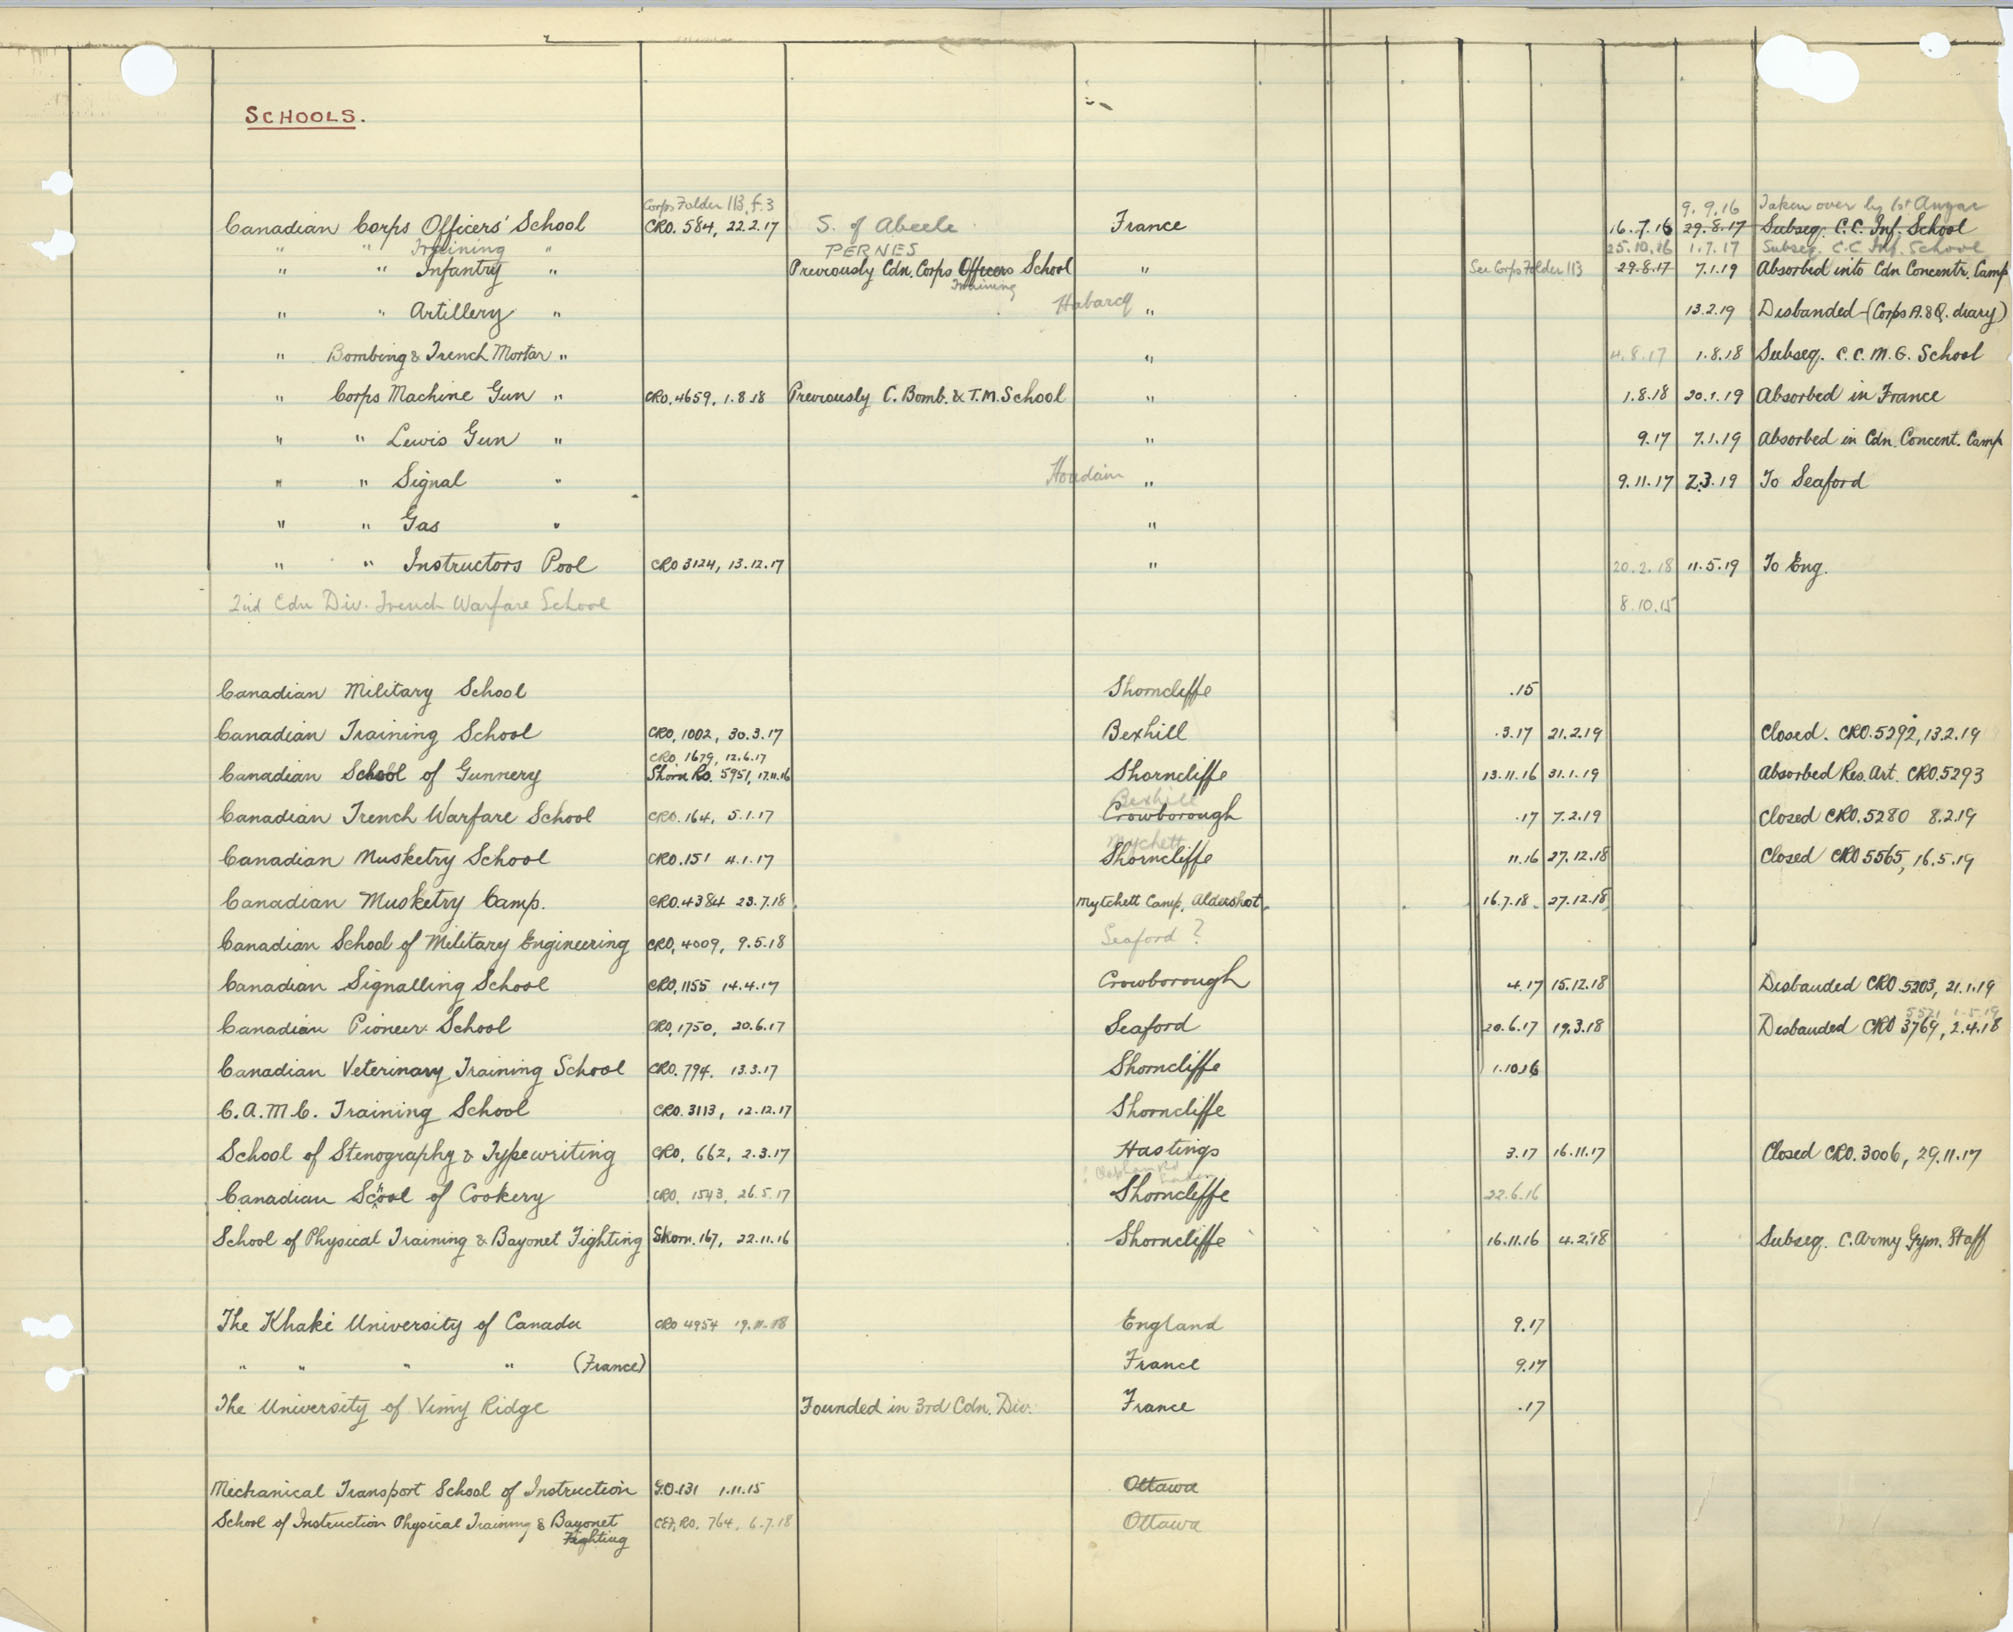 SCHOOLS.
Corps Folder 113, f.3 9.9.16 Taken over by 1st Anzac
Canadian Corps Officers' School CRO. 584, 22.2.17 S. of Abeele France 16.7.16 29.8.17 Subseq. C.C. Inf. School
" " Training " PERNES 25.10.16 1.7.17 Subseq. C.C. Inf. School
" " Infantry " Previously Cdn. Corps Officers School " See Corps Folder 113 29.8.17 7.1.19 Absorbed into Cdn Concentr. Camp
Training
" " Artillery " Habarcq " 13.2.19 Disbanded - (Corps A.&Q. diary)
" Bombing & Trench Mortar " " 4.8.17 1.8.18 Subseq. C.C.M.G. School
" Corps Machine Gun " CRO. 4659, 1.8.18 Previously C. Bomb. & T.M. School " 1.8.18 20.1.19 Absorbed in France
" " Lewis Gun " " 9.17 7.1.19 Absorbed in Cdn. Concent. Camp
" " Signal " Houdain " 9.11.17 2.3.19 To Seaford
" " Gas " "
" " Instructors Pool CRO 3124, 13.12.17 " 20.2.18 11.5.19 To Eng.
2nd Cdn Div. Trench Warfare School 8.10.15
Canadian Military School Shorncliffe .15
Canadian Training School CRO. 1002, 30.3.17 Bexhill .3.17 21.2.19 Closed. CRO. 5292, 13.2.19
CRO. 1679, 12.6.17
Canadian School of Gunnery Shorn Ro. 5951, 17.11.16 Shorncliffe 13.11.16 31.1.19 Absorbed Res. Art. CRO. 5293
Bexhill
Canadian Trench Warfare School CRO. 164, 5.1.17 Crowborough .17 7.2.19 Closed CRO. 5280 8.2.19
Mychett
Canadian Musketry School CRO. 151 4.1.17 Shorncliffe 11.16 27.12.18 Closed CRO 5565, 16.5.19
Canadian Musketry Camp. CRO. 4384 23.7.18 Mytchett Camp, Aldershot 16.7.18 27.12.18
Canadian School of Military Engineering CRO, 4009, 9.5.18 Seaford ?
Canadian Signalling School CRO, 1155 14.4.17 Crowborough 4.17 15.12.18 Disbanded CRO. 5203, 21.1.19
5521 1.5.19
Canadian Pioneer School CRO, 1750, 20.6.17 Seaford 20.6.17 19.3.18 Disbanded CRO 3769, 2.4.18
Canadian Veterinary Training School CRO. 794. 13.3.17 Shorncliffe 1.10.16
C.A.M.C. Training School CRO. 3113, 12.12.17 Shorncliffe
School of Stenography & Typewriting CRO, 662, 2.3.17 Hastings 3.17 16.11.17 Closed CRO. 3006, 29.11.17
Canadian School of Cookery CRO, 1543, 26.5.17 Shorncliffe 22.6.16
School of Physical Training & Bayonet Fighting Shorn. 167, 22.11.16 Shorncliffe 16.11.16 4.2.18 Subseq. C. Army Gym. Staff
The Khaki University of Canada CRO 4954 19.11.18 England 9.17
" " " " (France) France 9.17
The University of Vimy Ridge Founded in 3rd Cdn. Div. France .17
Mechanical Transport School of Instruction G.O. 131 1.11.15 Ottawa
School of Instruction Physical Training & Bayonet CEF, RO. 764, 6.7.18 Ottawa
Fighting